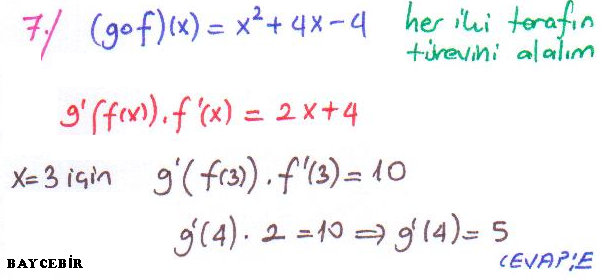 7./ (gof)(x) = x² + 4x - 4 her iki tarafın
türevini alalım
g'(f(x)). f'(x) = 2x+4
x=3 için g'(f(3)). f'(3) = 10
g'(4). 2 = 10 ⇒ g'(4) = 5
BAYCEBİR CEVAP:E